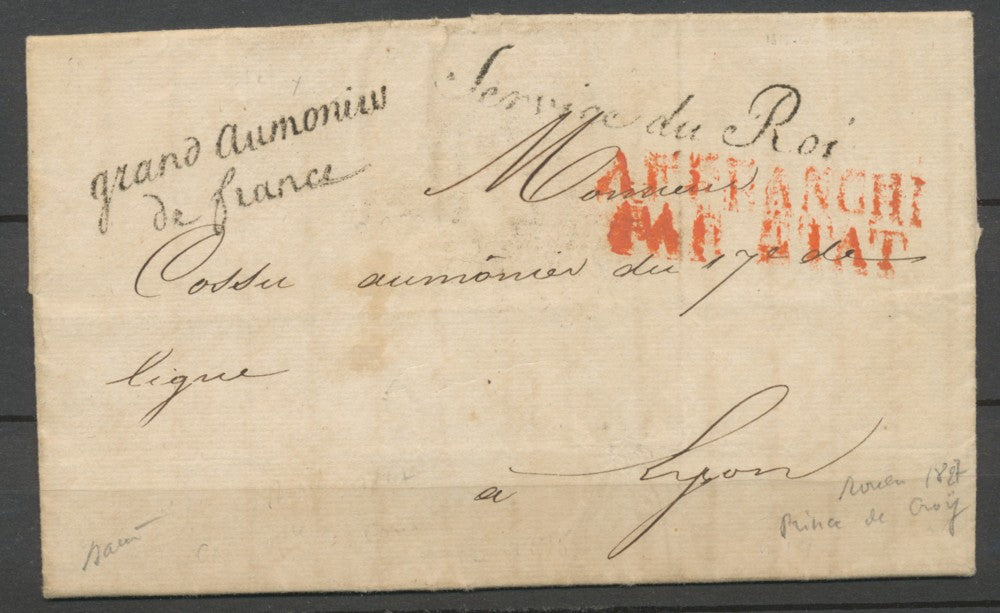 grand aumonier
de france
Service du Roi
AFFRANCHI
PAR ETAT
Monsieur
Cossu aumônier du 17e de
ligne
a Lyon
Rouen 1827
Prince de Croÿ